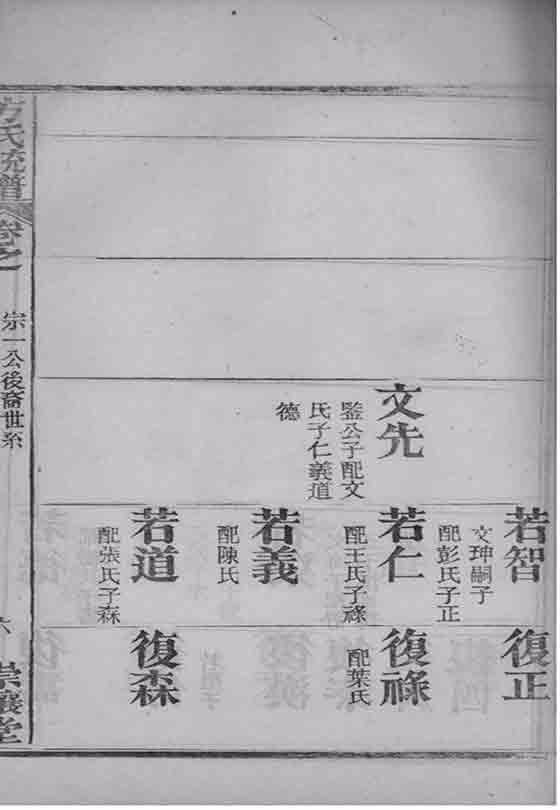 文先
監公子配文
氏子仁義道
德
若智
文珅嗣子
配彭氏子正
若仁
配王氏子祿
若義
配陳氏
若道
配張氏子森
復正
復祿
配葉氏
復森
方氏統譜
卷之一
宗一公後裔世系
六
崇讓堂